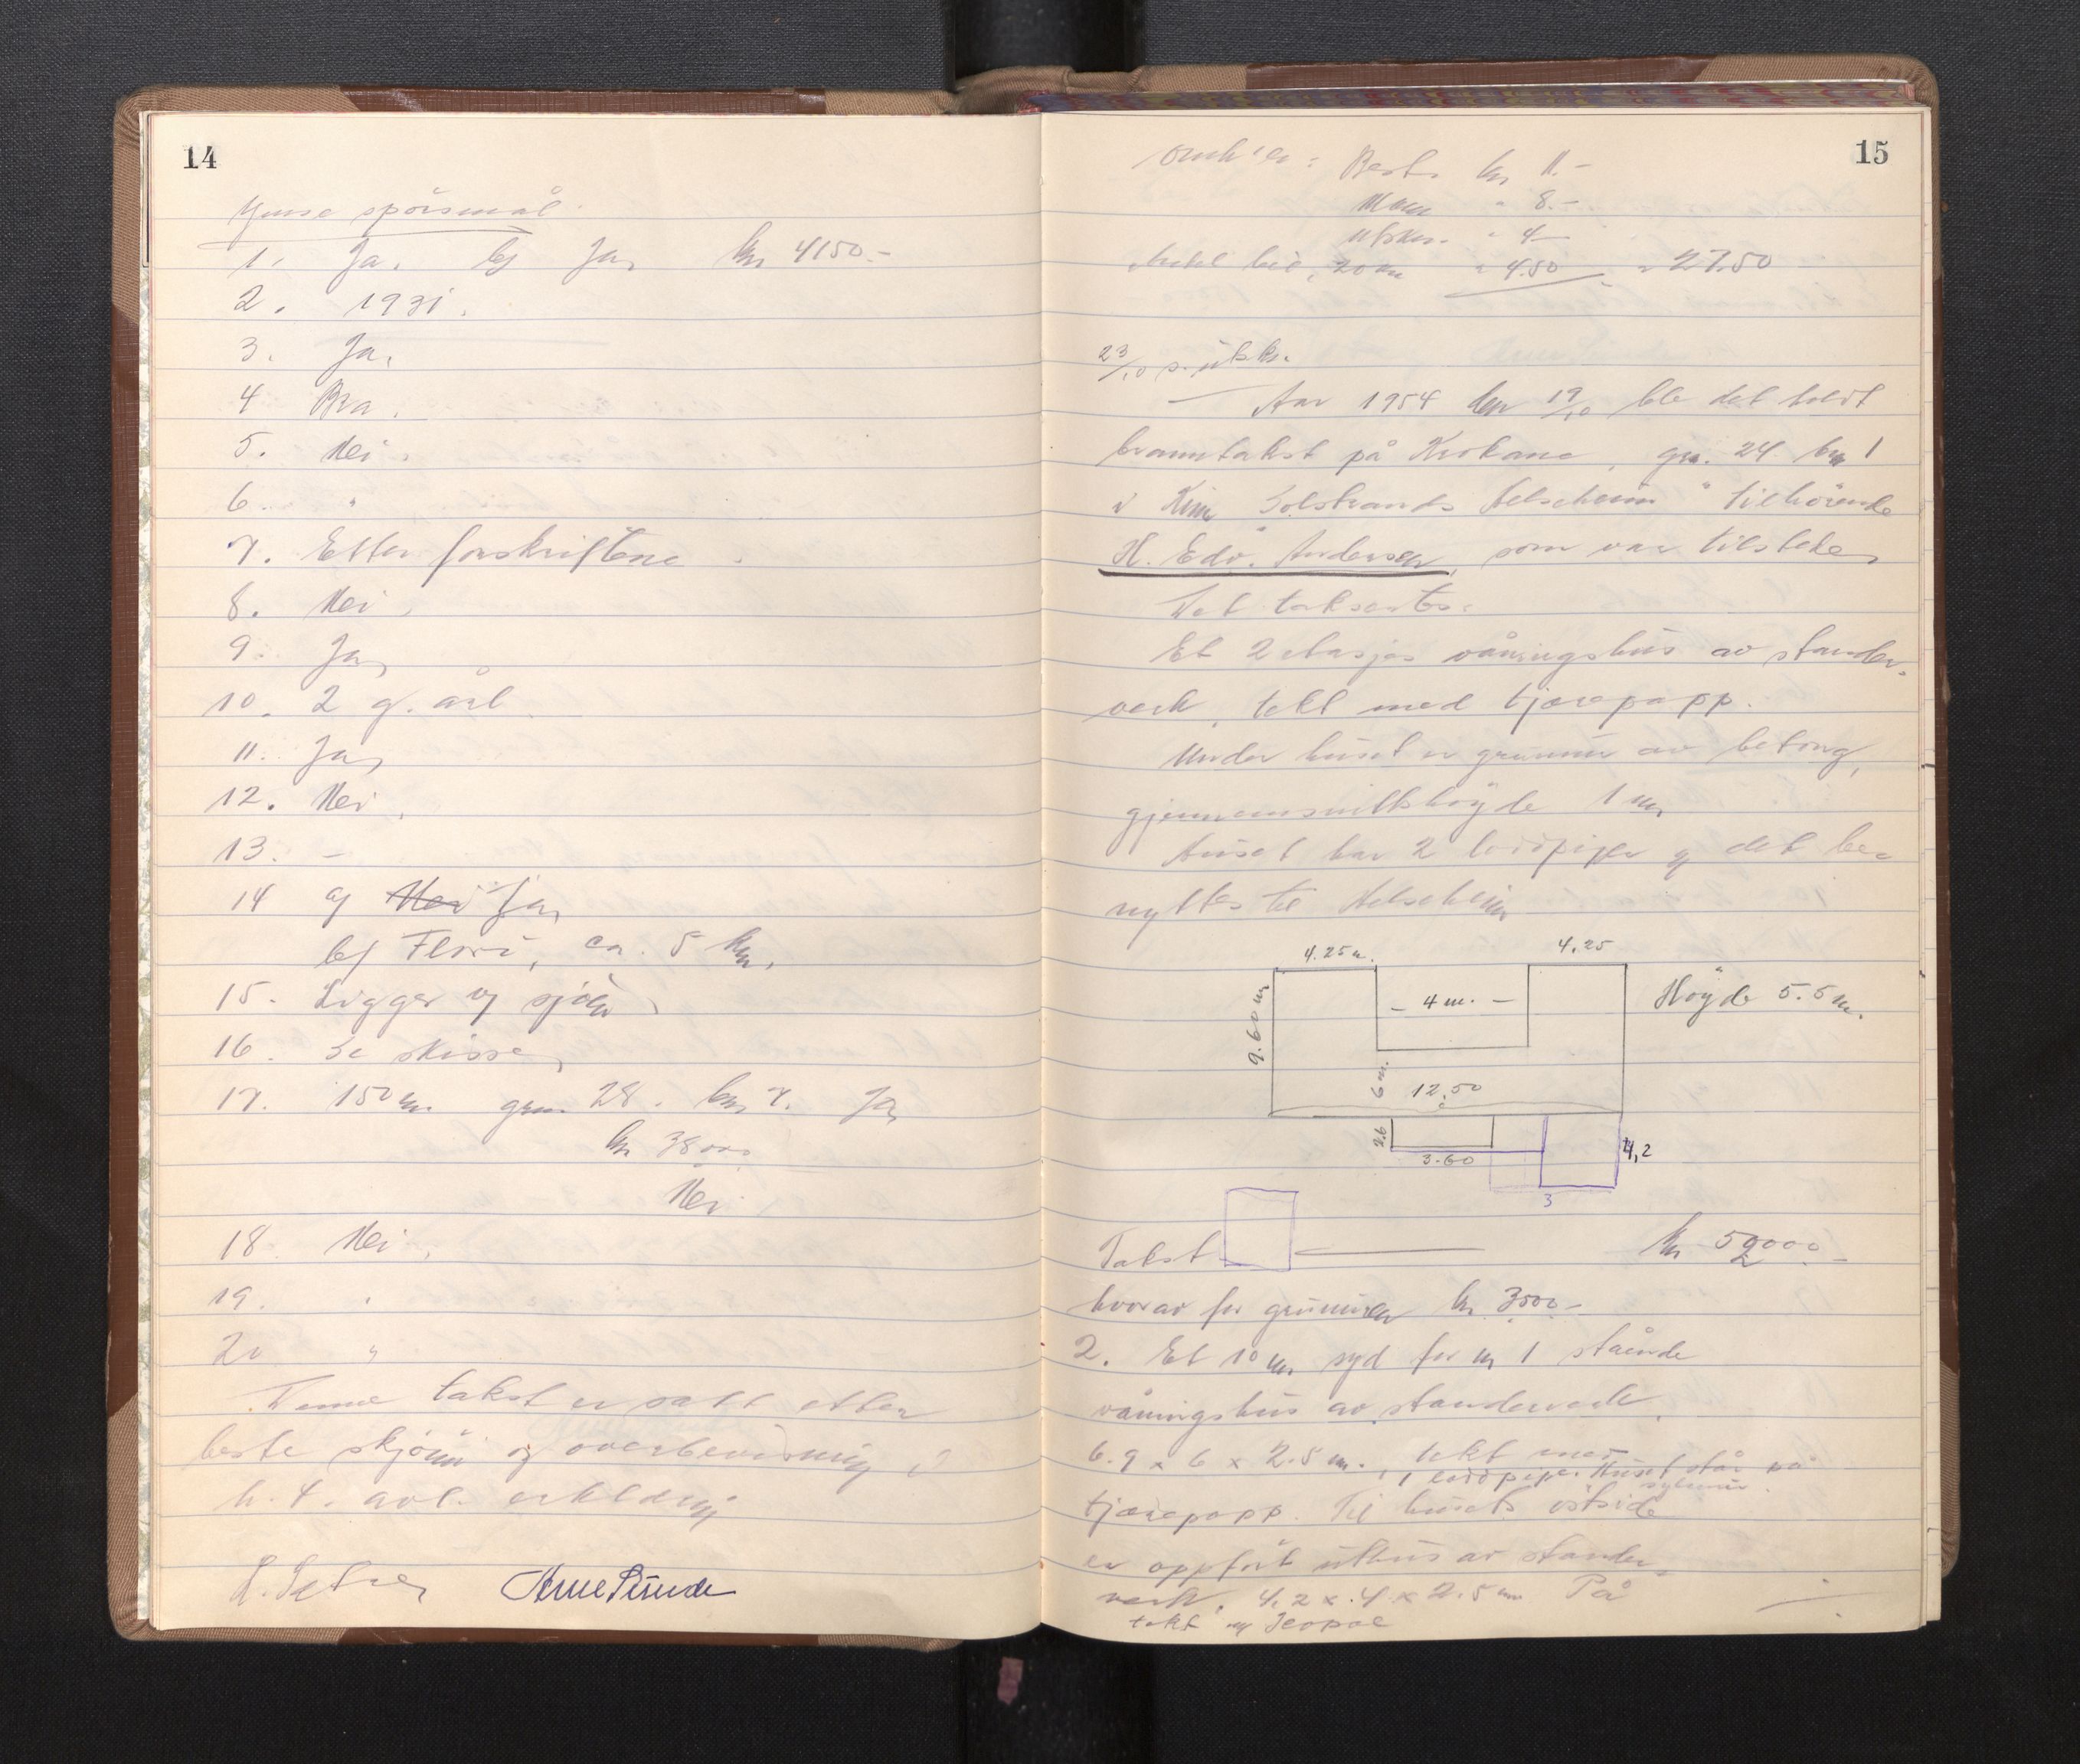 14
spörsmål
1. Ja. b) Ja, kr 4150.-
2. 1931.
3. Ja,
4 Bra.
5. Nei.
6. "
7. Etter forskriftene.
8. Nei.
9. Ja,
10. 2 g. årl.
11. Ja,
12. Nei.
13. -
14 a) Nei Ja,
b) Florö, ca. 5 km.
15. Ligger v/ sjöen
16. Se skisse,
17. 150 m. gnr. 28. bnr 7. Ja,
kr 38000
Nei
18 Nei.
19. "
20 "
Denne takst er satt etter
beste skjönn og overbevisning i
h. t. avl. erklæring
Arne Sunde
15
kr 11.-
" 8.-
" 4-
20 km " 4.50 = 27.50
23/10 s. utskr.
Aar 1954 den 19/10 ble det holdt
branntakst på Krokane, gnr. 24 bnr 1
i Kinn "Solstrands Helseheim" tilhörende
H. Edv. Andersen, som var tilstede,
Det takseres:
Et 2 etasjes våningshus av stander-
verk, tekt med tjærepapp.
Under huset er grunnmur av betong,
gjennemsnittshöyde 1 m,
Huset har 2 ledpiper og det be-
nyttes til Helseheim
4.25 m.
4,25
9.60 m
- 4 m. -
Höyde 5.5 m.
6 m.
12,50
2.6
3.60
4,2
3
Takst kr 52000.-
hvorav for grunnmuren kr. 3500-
2. Et 10 m, syd for nr 1 stående
våningshus av standerverk.
6.9 x 6 x 2.5 m., tekt med
Huset står på
tjærepapp. Til husets östside
er oppfört uthus av stander-
verk, 4,2 x 4 x 2.5 m På
tekt